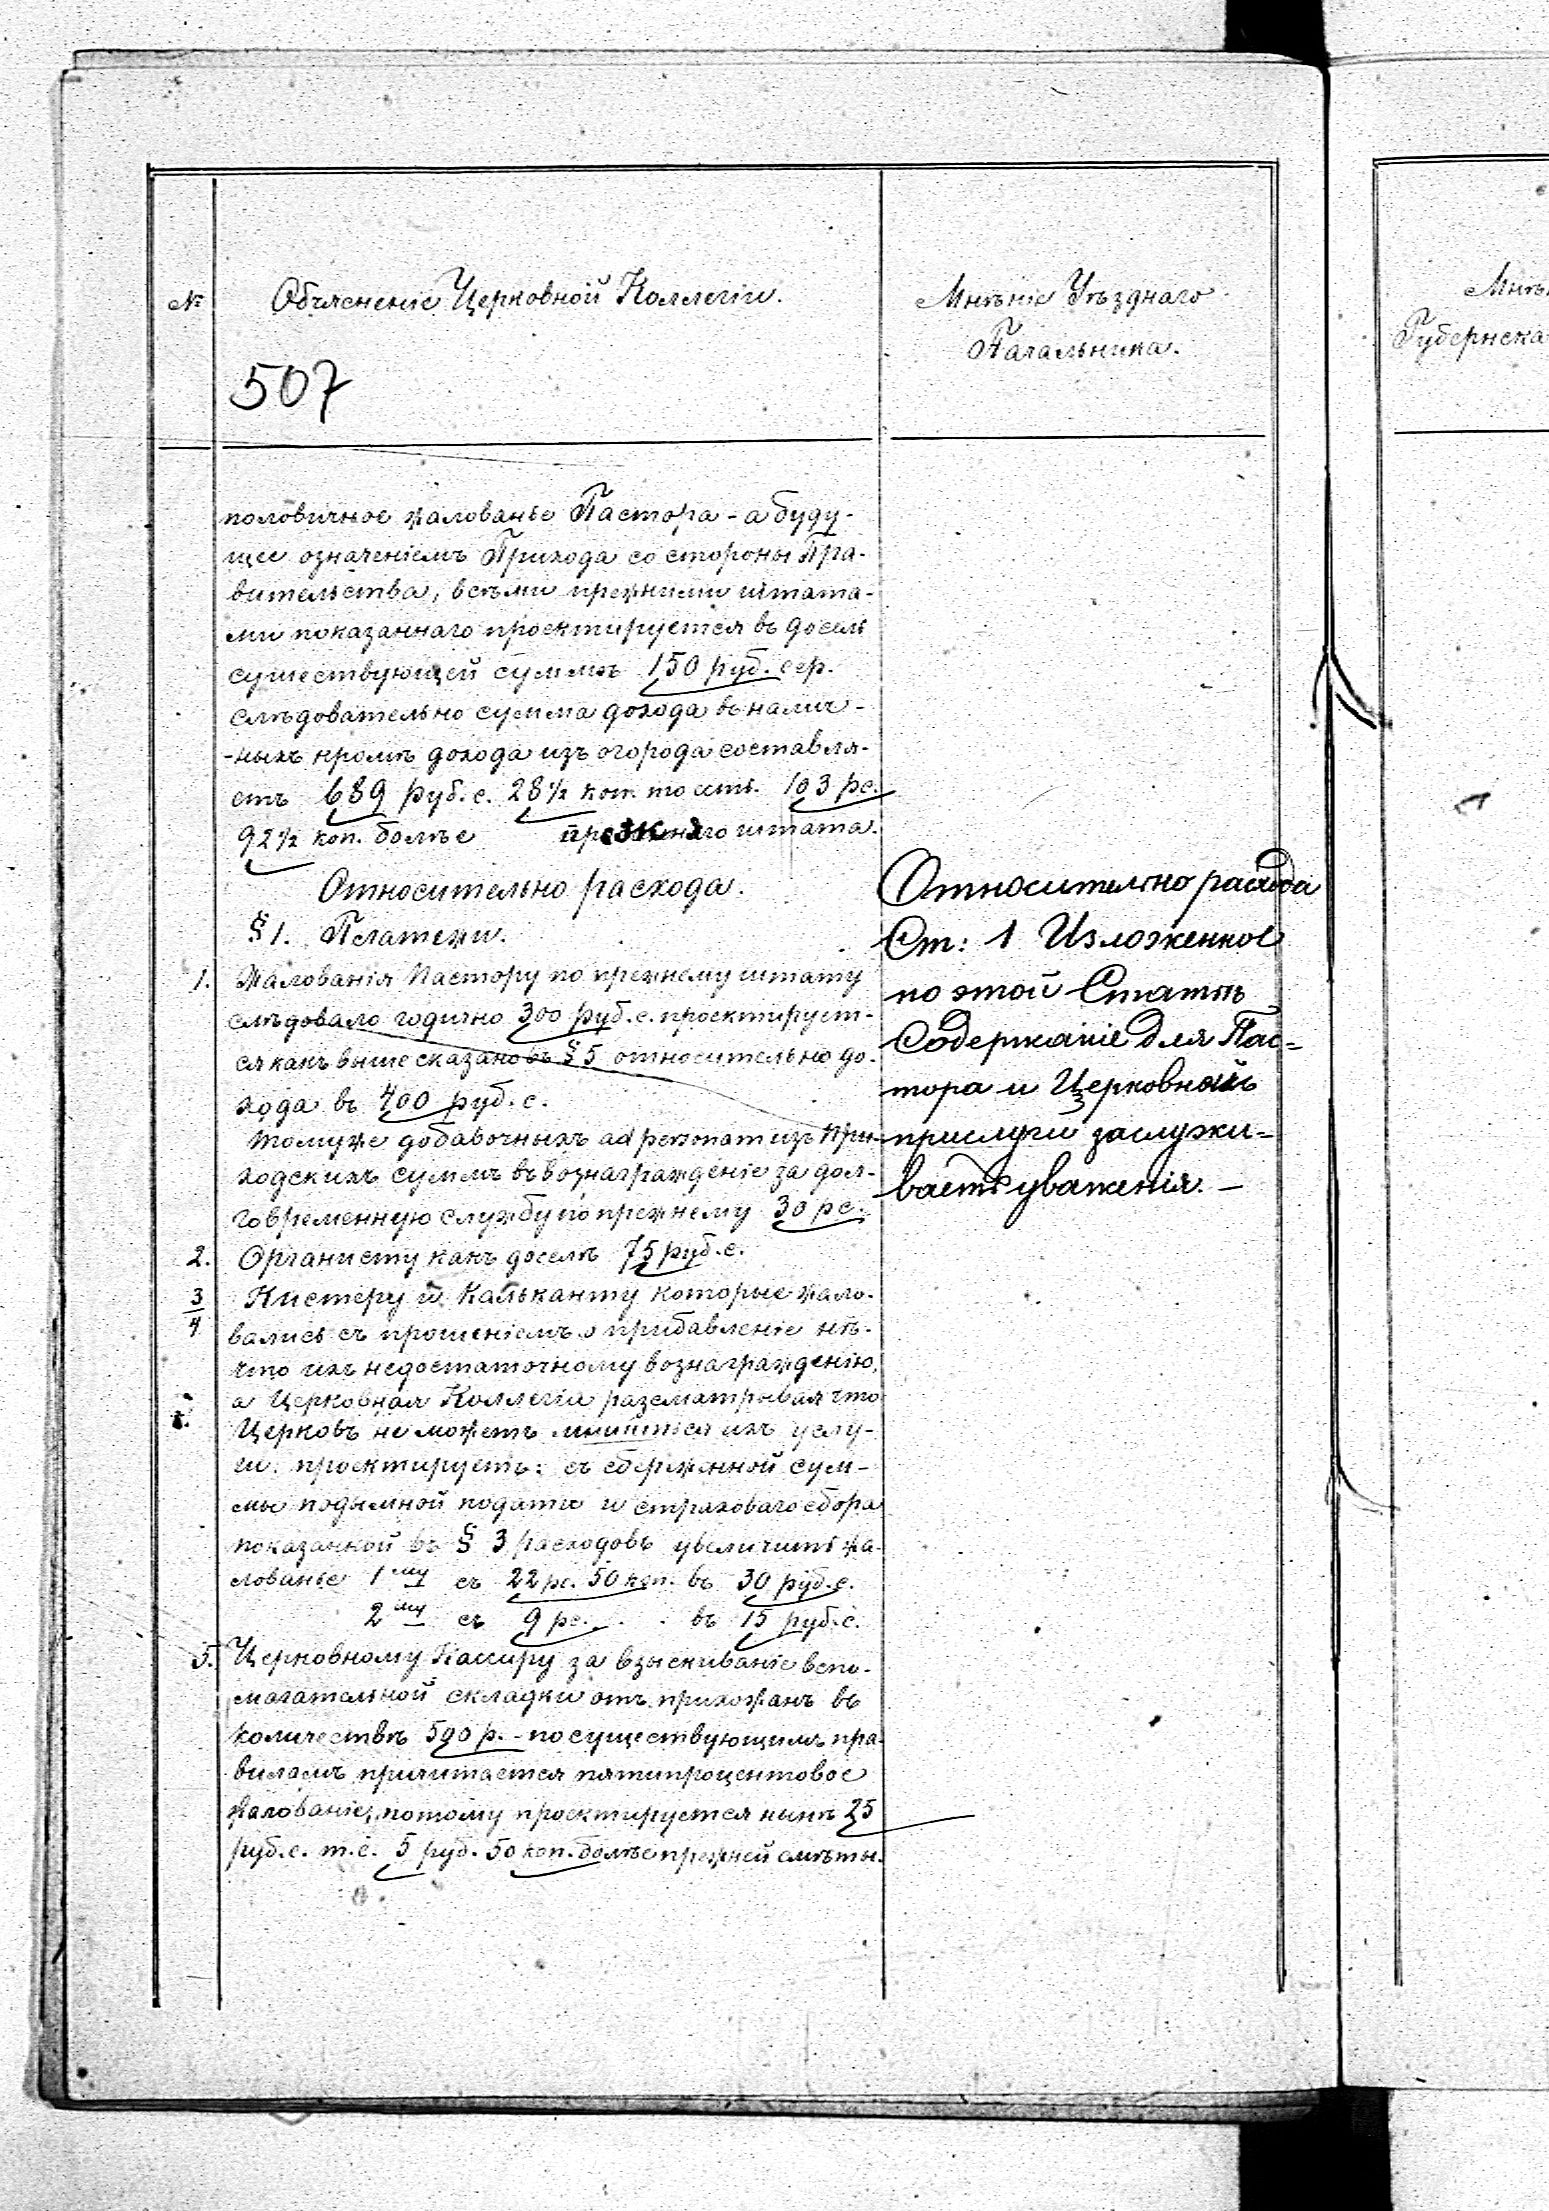 №
Объясненіе Церковной Коллегіи.
Мнѣніе Уѣзднаго
Начальника.
507
половичное жалованье Пастора - а буду-
щее означеніемъ Прихода со стороны Пра-
вительства, всѣми прежними штата-
ми показаннаго проектируется въ доселѣ
существующей суммѣ 150 руб. сер.
слѣдовательно сумма дохода въ налич-
-ныхъ кромѣ дохода изъ огорода составля-
етъ 689 руб. с. 28½ коп. то есть 103 рс.
92½ коп. болѣе прежняго штата.
Относительно расхода.
§ 1. Платежи.
1. Жалованія Пастору по прежнему штату
слѣдовало годично 300 руб. с. проектирует-
ся какъ выше сказано въ § 5 относительно до-
хода въ 400 руб. с.
Томуже добавочныхъ ad personam изъ При-
ходскихъ суммъ въ вознагражденіе за дол-
говременную службу по прежнему 30 рс.
2. Органисту какъ доселѣ 75 руб. с.
3/4 Кистеру и Кальканту которые жало-
вались съ прошеніемъ о прибавленіе нѣ-
что ихъ недостаточному вознагражденію,
а Церковная Коллегія разсматривая что
Церковъ не можетъ лишится ихъ услу-
ги. проектируетъ: съ сбереженной сум-
мы подымной подати и страховаго сбора
показанной въ § 3 расходовъ увеличить жа-
лованье 1му съ 22 рс. 50 коп. въ 30 руб. с.
2му съ 9 рс. . . въ 15 руб. с.
5. Церковному Кассиру за взыскиваніе вспо-
магательной складки отъ прихожанъ въ
количествѣ 500 р. - по существующимъ пра-
виламъ причитается пятипроцентовое
жалованіе, потому проектируется нынѣ 25
руб. с. т. е. 5 руб. 50 коп. болѣе прежней смѣты.
Относительно расхода
Ст: 1 Изложенное
по этой Статьѣ
Содержаніе для Пас=
тора и Церковной
прислуги заслужи=
ваетъ уваженія. —
Губернска